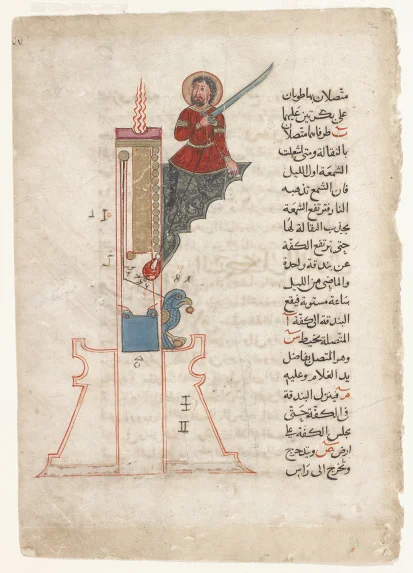 متصلان بهما طوبان
على بكرتين عليهما
طرفاهما متصلان
بالثقالة ومتى اشعلت
الشمعة اول الليل
فان الشمع تذهبه
النار فترتفع الشمعة
بجذب الثقالة لها
حتى ترتفع الكفة
عن بندقة واحدة
والماضي من الليل
ساعة مستوية فيقع
البندقة الى الكفة
المتصلة بخيط س
وهو المتصل بفاضل
يد الغلام وعليه
فينزل البندقة
في الكفة حتى
يجلس الكفة على
ارض ص ويتدحرج
وتخرج الى راس